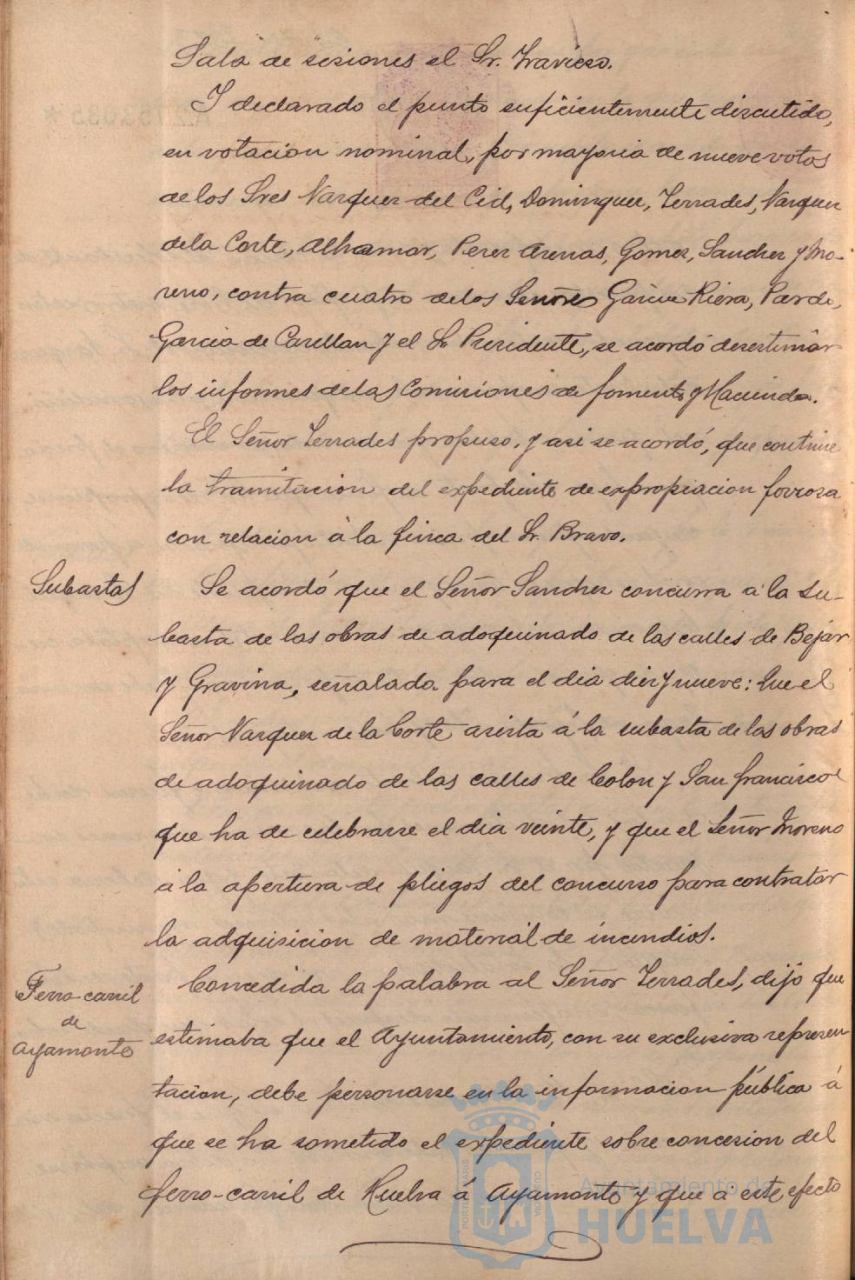 Sala de sesiones el Sr. Travieso.
Y declarado el punto suficientemente discutido,
en votacion nominal, por mayoria de nueve votos
de los Sres Vazquez del Cid, Dominguez, Terrades, Vazquez
de la Corte, Alhamar, Perez Arenas, Gomez, Sanchez y Mo-
reno, contra cuatro de los Señores Garcia Riera, Pardo,
Garcia de Casellan y el Sr Presidente, se acordó desestimar
los informes de las Comisiones de fomento y Hacienda.
El Señor Terrades propuso, y asi se acordó, que continue
la tramitacion del expediente de expropiacion forzosa
con relacion á la finca del Sr. Bravo.
Subastas
Se acordó que el Señor Sanchez concurra á la su-
basta de las obras de adoquinado de las calles de Bejár
y Gravina, señalada para el dia diez y nueve: Que el
Señor Vazquez de la Corte asista á la subasta de las obras
de adoquinado de las calles de Colon y San francisco
que ha de celebrarse el dia veinte, y que el Señor Moreno
á la apertura de pliegos del concurso para contratar
la adquisicion de material de incendios.
Ferro-carril
de
Ayamonte
Concedida la palabra al Señor Terrades, dijo que
estimaba que el Ayuntamiento, con su exclusiva represen-
tacion, debe personarse en la informacion pública á
que se ha sometido el expediente sobre concesion del
ferro-carril de Huelva á Ayamonte y que a este efecto
Ayuntamiento de
HUELVA